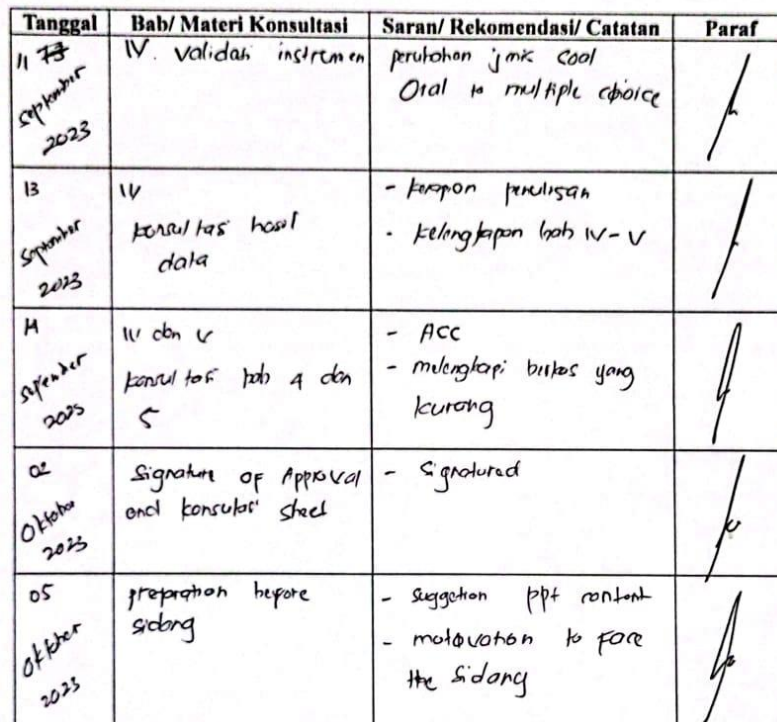 Tanggal Bab/ Materi Konsultasi Saran/ Rekomendasi/ Catatan Paraf
11
September
2023
IV. Validasi instrumen
perubahan jenis soal
Oral to multiple choice
13
September
2023
IV
konsultasi hasil
data
- kerapian penulisan
- kelengkapan bab IV - V
14
September
2023
IV dan V
konsultasi bab 4 dan
5
- ACC
- melengkapi berkas yang
kurang
02
Oktober
2023
Signature of Approval
and konsultasi sheet
- Signatured
05
Oktober
2023
prepration before
sidang
- suggetion ppt content
- motovation to face
the sidang